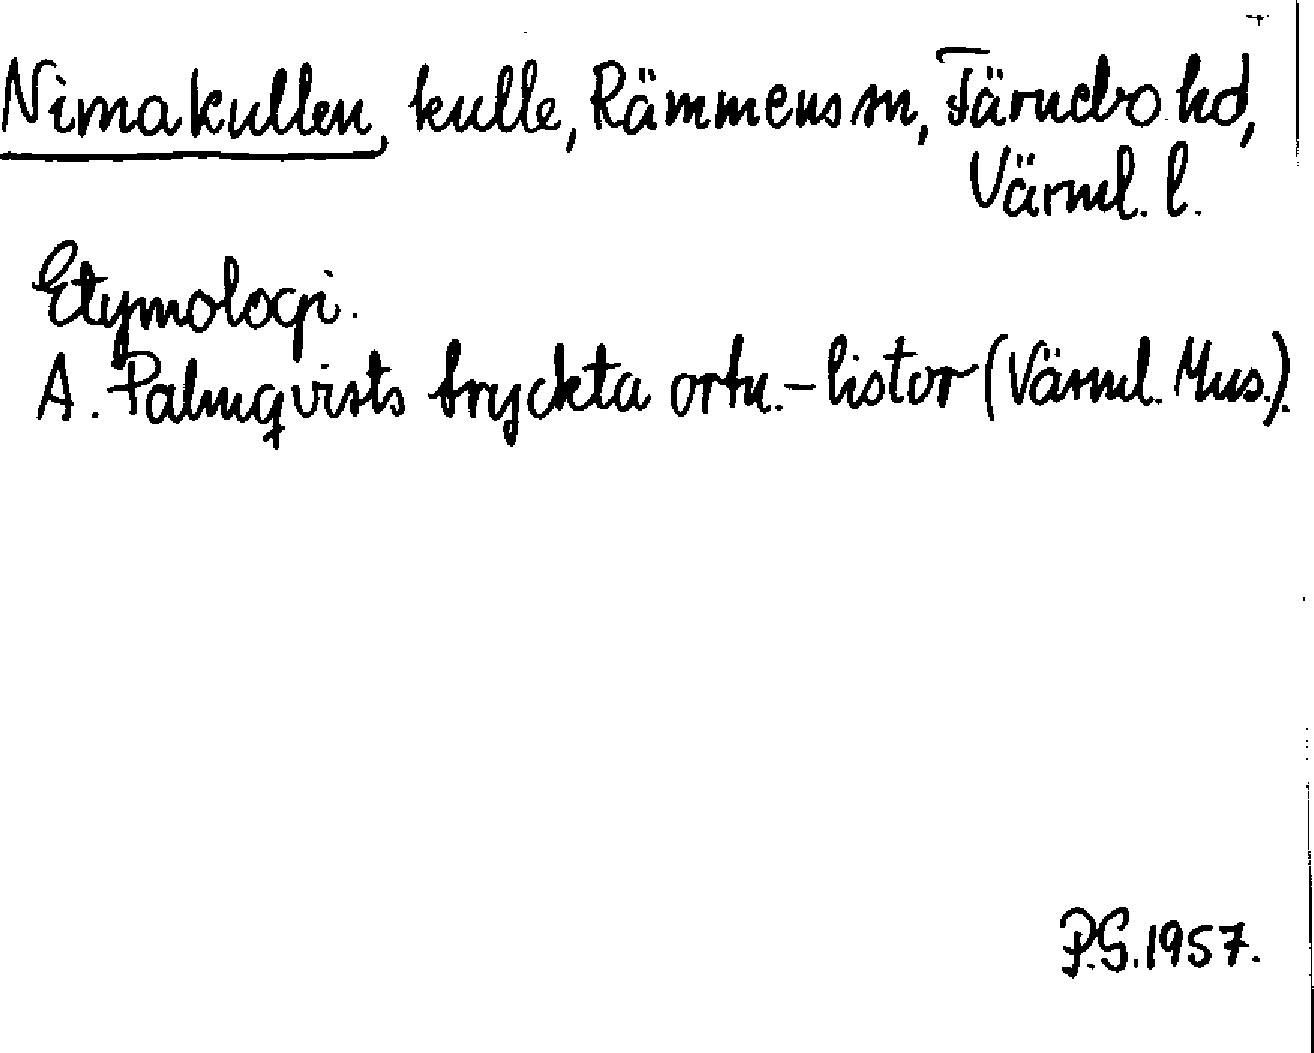 Nimakullen, kulle, Rämmens sn, Färnebo hd,
Värml. l.
Etymologi.
A. Palmqvists tryckta ortn.-listor (Värml. Mus.).
P.G. 1957.